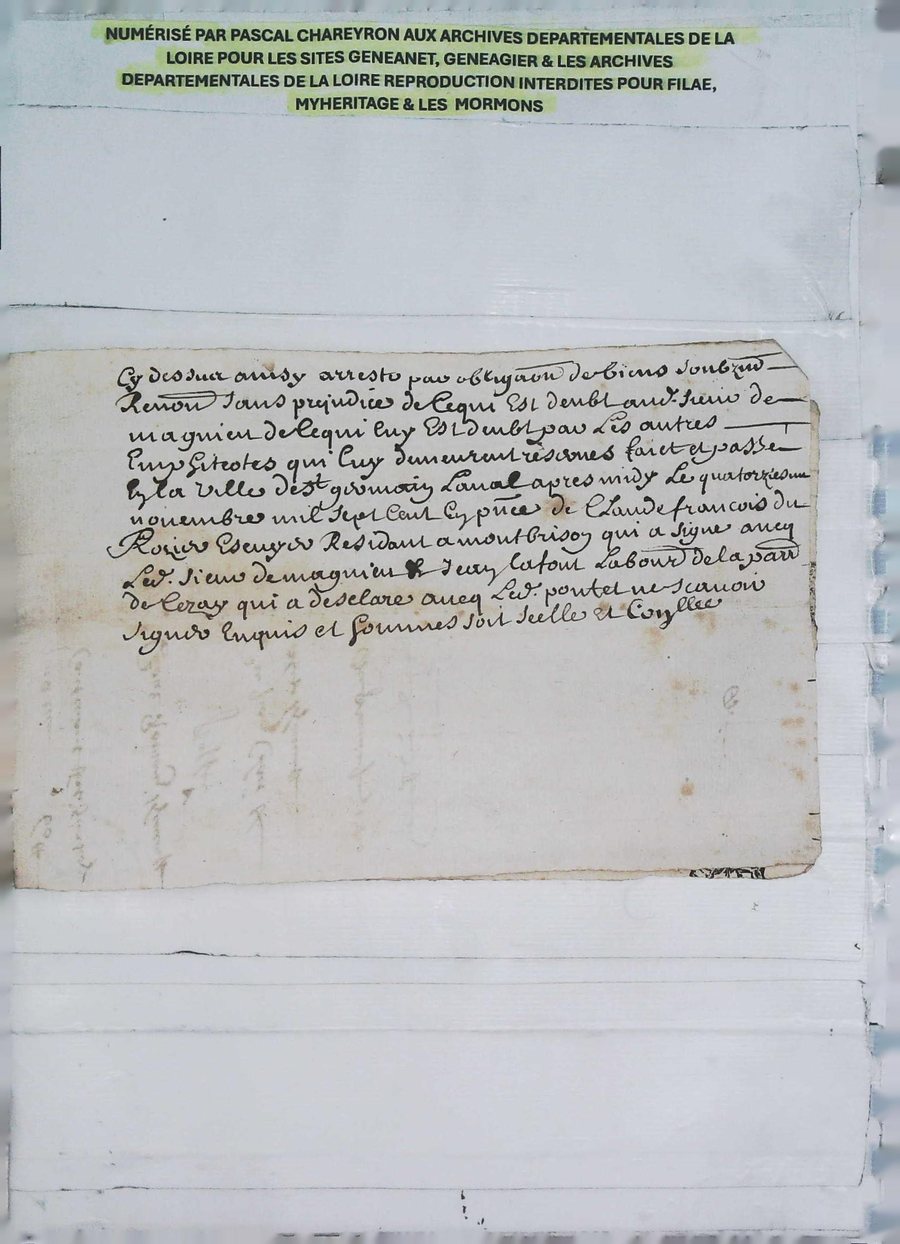 NUMÉRISÉ PAR PASCAL CHAREYRON AUX ARCHIVES DEPARTEMENTALES DE LA
LOIRE POUR LES SITES GENEANET, GENEAGIER & LES ARCHIVES
DEPARTEMENTALES DE LA LOIRE REPRODUCTION INTERDITES POUR FILAE,
MYHERITAGE & LES MORMONS
Cy dessur ainsy arresté par obligaon de biens soubzmd
Renon sans prejudice de ce qui Est deubt aud. sieur de
magnieu de ce qui luy Est deubt par Les autres
Emphiteotes qui luy demeurent réservés faict et passé
En la ville de st germain Laval apres midy Le quatorziesme
novembre mil sept Cent En pnce de Claude francois du
Rozier Escuyer Residant a montbrison qui a signé avecq
Led. sieur de magnieu & Jean lafont Labour de la parr
de Cezay qui a desclaré avecq Led. pontet ne scavoir
signer Enquis et sommés soit scellé et Conllée